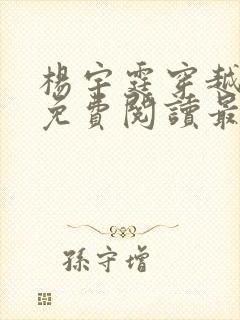 楊宇霆穿越
免費閱讀最
孫守增